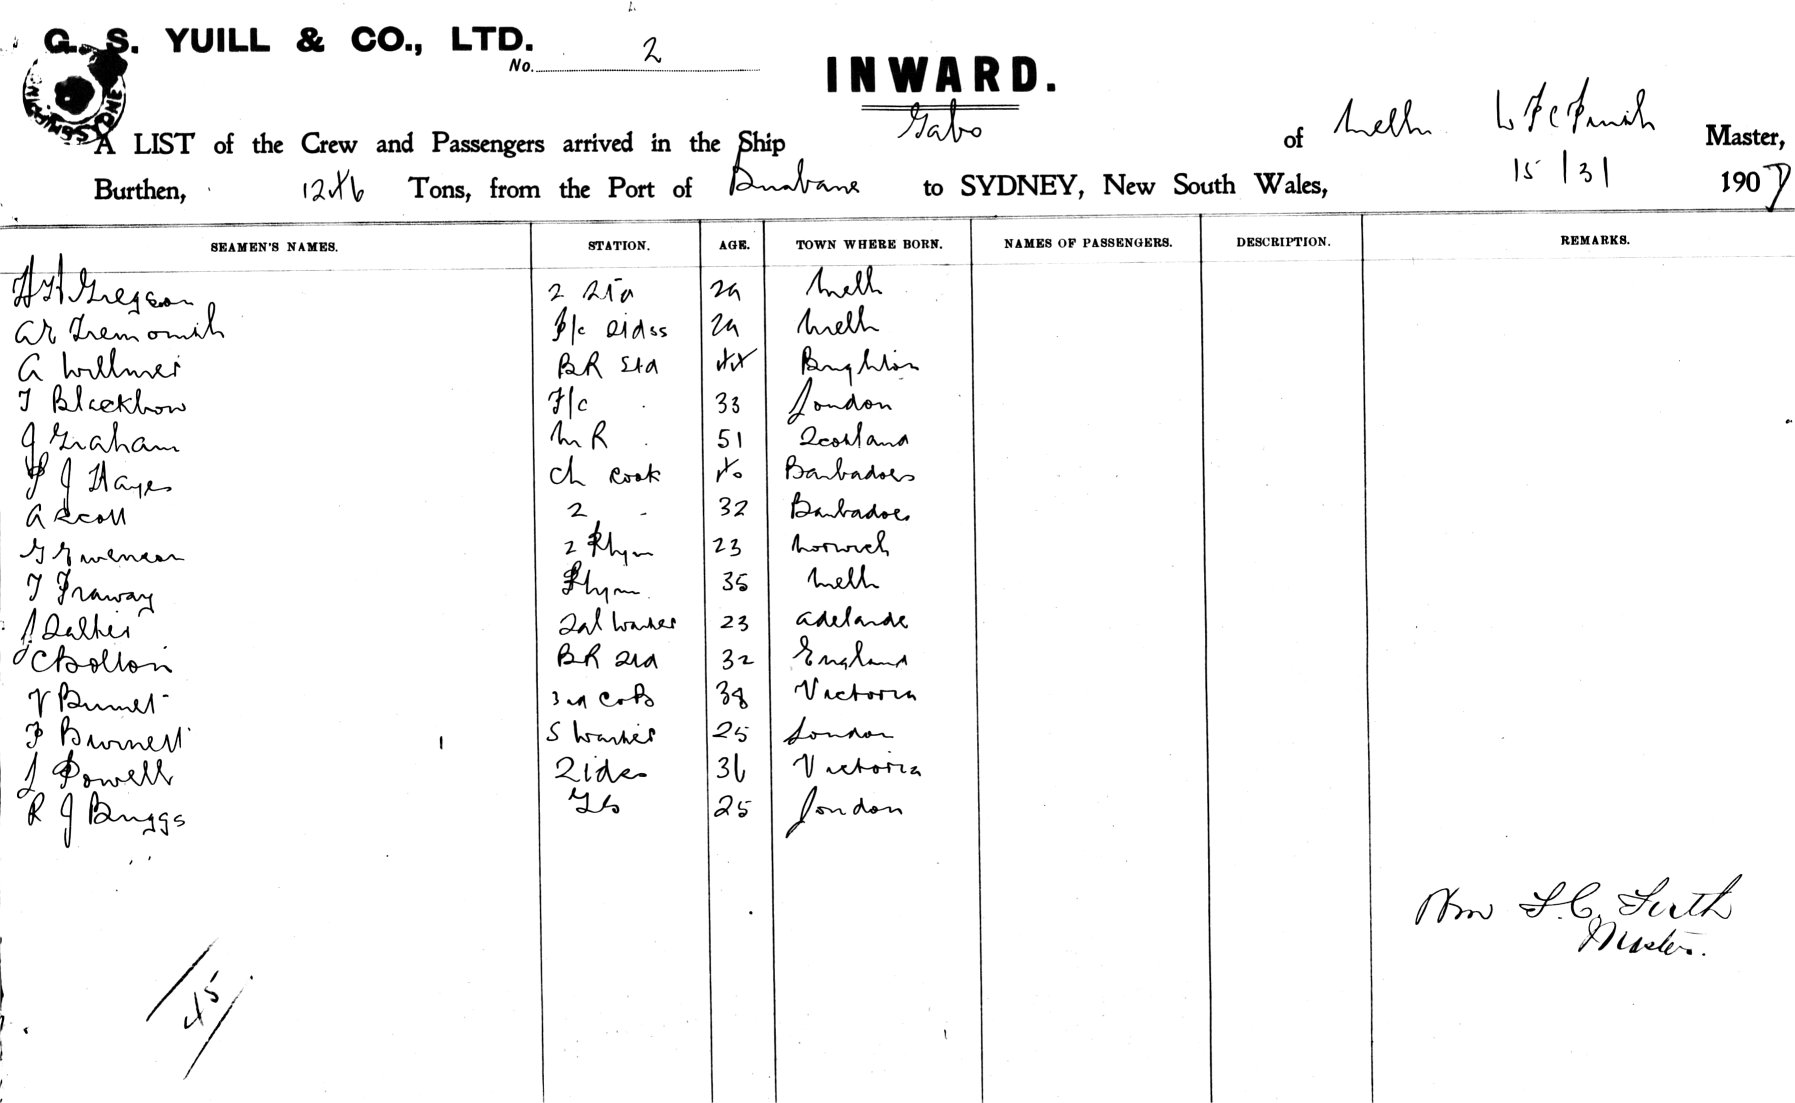 G. S. YUILL & CO., LTD.
No. 2
INWARD.
A LIST of the Crew and Passengers arrived in the Ship Gabo of Melb W F C Firth Master,
Burthen, 1246 Tons, from the Port of Brisbane to SYDNEY, New South Wales, 15/3/ 1907
SEAMEN'S NAMES. STATION. AGE. TOWN WHERE BORN. NAMES OF PASSENGERS. DESCRIPTION. REMARKS.
H H Gregson 2 Std 29 Melb
29 Melb
A Willmer BR Std 44 Brighton
T Blackbow F/c 33 London
J Graham M R 51 Scotland
P J Hayes Ch Cook 40 Barbadoes
A Scott 2 - 32 Barbadoes
G Swenson 2 23 Norwich
T 35 Melb
23 Adelaide
C Bolton BR Std 32 England
V Burnet 3rd Cook 38 Victoria
F Burnett S Waiter 25 London
J Powell 36 Victoria
R J Briggs 25 London
Wm F. C. Firth
Master.
45